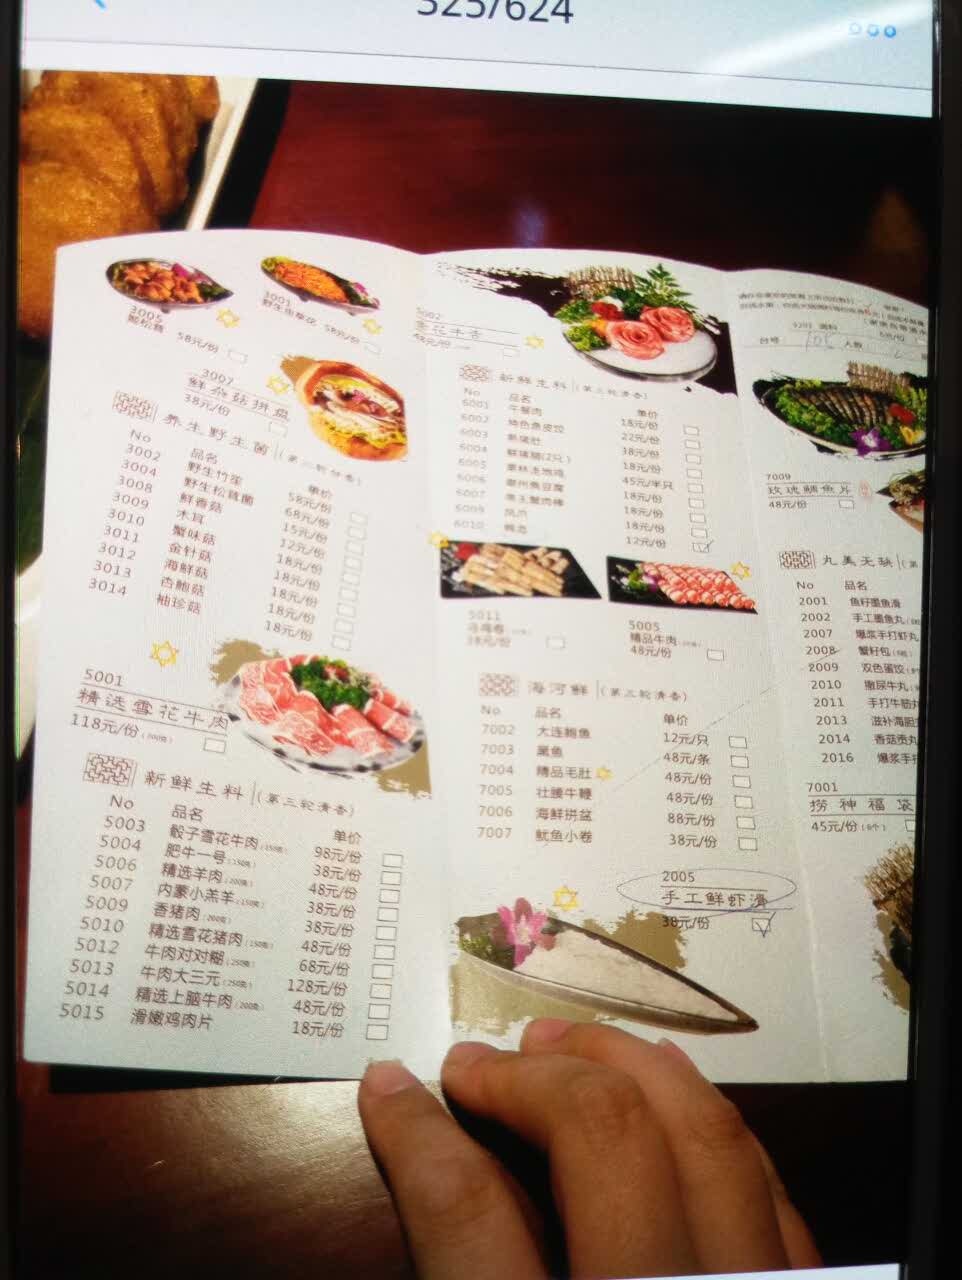 325/624
3005
姬松茸
58元/份
3001
野生虫草花 58元/份
3007
鲜杂菇拼盘
38元/份
养生野生菌 (第二轮清香)
No 品名 单价
3002 野生竹笙 58元/份
3004 野生松茸菌 68元/份
3008 鲜香菇 15元/份
3009 木耳 12元/份
3010 蟹味菇 18元/份
3011 金针菇 18元/份
3012 海鲜菇 18元/份
3013 杏鲍菇 18元/份
3014 袖珍菇 18元/份
5001
精选雪花牛肉
118元/份(200克)
新鲜生料 (第三轮清香)
No 品名 单价
5003 骰子雪花牛肉(150克) 98元/份
5004 肥牛一号(150克) 38元/份
5006 精选羊肉(200克) 48元/份
5007 内蒙小羔羊(150克) 38元/份
5009 香猪肉(200克) 38元/份
5010 精选雪花猪肉(150克) 48元/份
5012 牛肉对对糊(250克) 68元/份
5013 牛肉大三元(250克) 128元/份
5014 精选上脑牛肉(200克) 48元/份
5015 滑嫩鸡肉片 18元/份
5002
48元/份
新鲜生料 (第三轮清香)
No 品名 单价
6001 午餐肉 18元/份
6002 特色鱼皮饺 22元/份
6003 38元/份
6004 (2只) 18元/份
6005 走地鸡 45元/半只
6006 潮州鱼豆腐 18元/份
6007 蟹肉棒 18元/份
6009 凤爪 18元/份
6010 12元/份
5011
38元/份
5005
精品牛肉
48元/份
海河鲜 (第三轮清香)
No 品名 单价
7002 大连鲍鱼 12元/只
7003 黑鱼 48元/条
7004 精品毛肚 48元/份
7005 壮腰牛鞭 48元/份
7006 海鲜拼盆 88元/份
7007 鱿鱼小卷 38元/份
2005
手工鲜虾滑
38元/份
9201 调料 5元/份
台号 人数
7009
玫瑰鲷鱼片
48元/份
丸美无玦 (第
No 品名
2001 鱼籽墨鱼滑
2002 手工墨鱼丸
2007 爆浆手打虾丸
2008 蟹籽包
2009 双色蛋饺
2010 撒尿牛丸
2011 手打牛筋丸
2013 滋补海胆
2014 香菇贡丸
2016 爆浆手打
7001
捞神福袋
45元/份(6个)